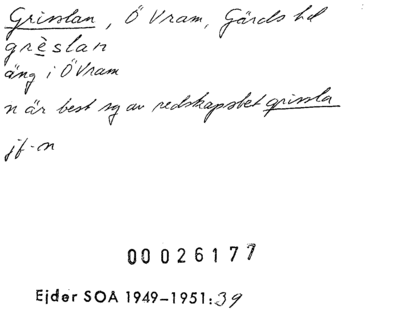 Grisslan, Ö Vram, Gärds hd
grèslan
äng i Ö Vram
n är best sg av redskapsbet grissla
jf -n
00026177
Ejder SOA 1949-1951:39